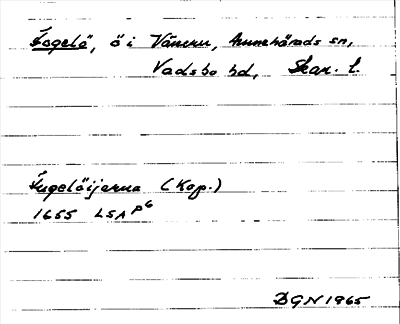 Fogelö, ö i Vänern, Amnehärads sn,
Vadsbo hd, Skar. l.
Fugelöijarna (Kop.)
1655 LSA P6
DGN 1965